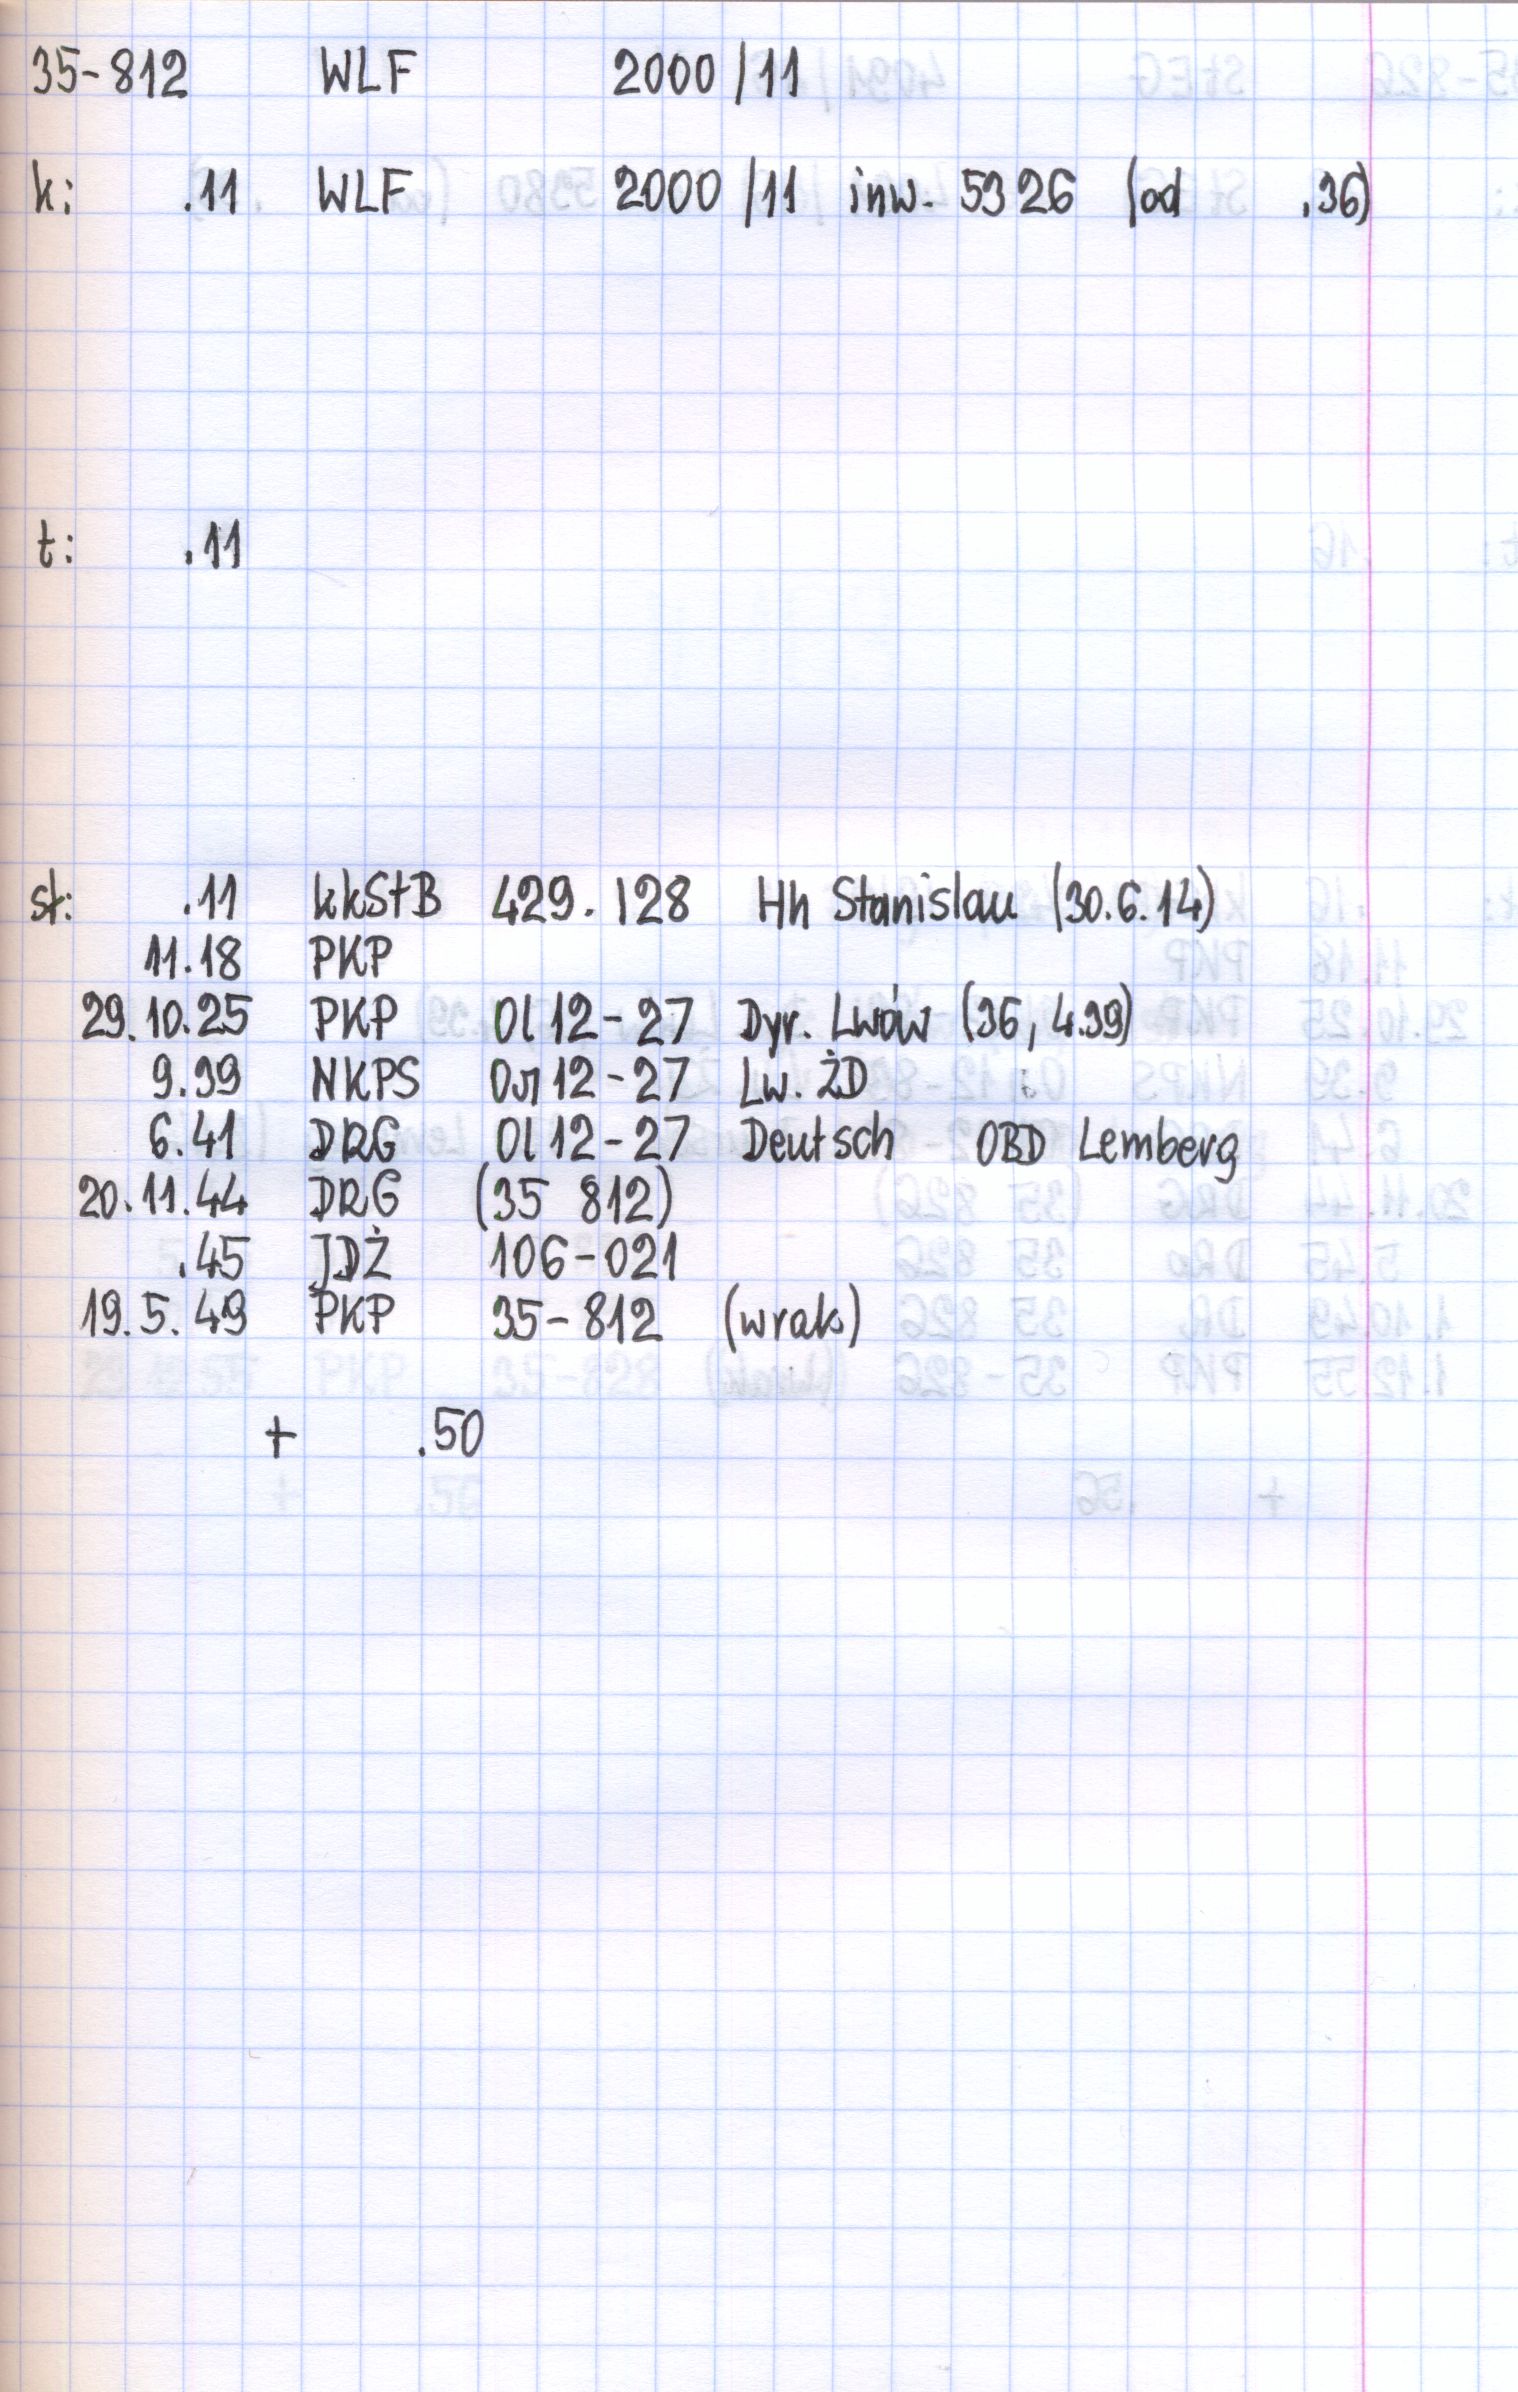 35-812 WLF 2000/11
k: .11 WLF 2000/11 inw. 5326 (od .36)
t: .11
st: .11 kkStB 429.128 Hh Stanislau (30.6.14)
11.18 PKP
29.10.25 PKP Ol12-27 Dyr. Lwów (36, 4.39)
9.39 NKPS Ол12-27 Lw. ŻD
6.41 DRG Ol12-27 Deutsch OBD Lemberg
20.11.44 DRG (35 812)
.45 JDŻ 106-021
19.5.49 PKP 35-812 (wrak)
+ .50